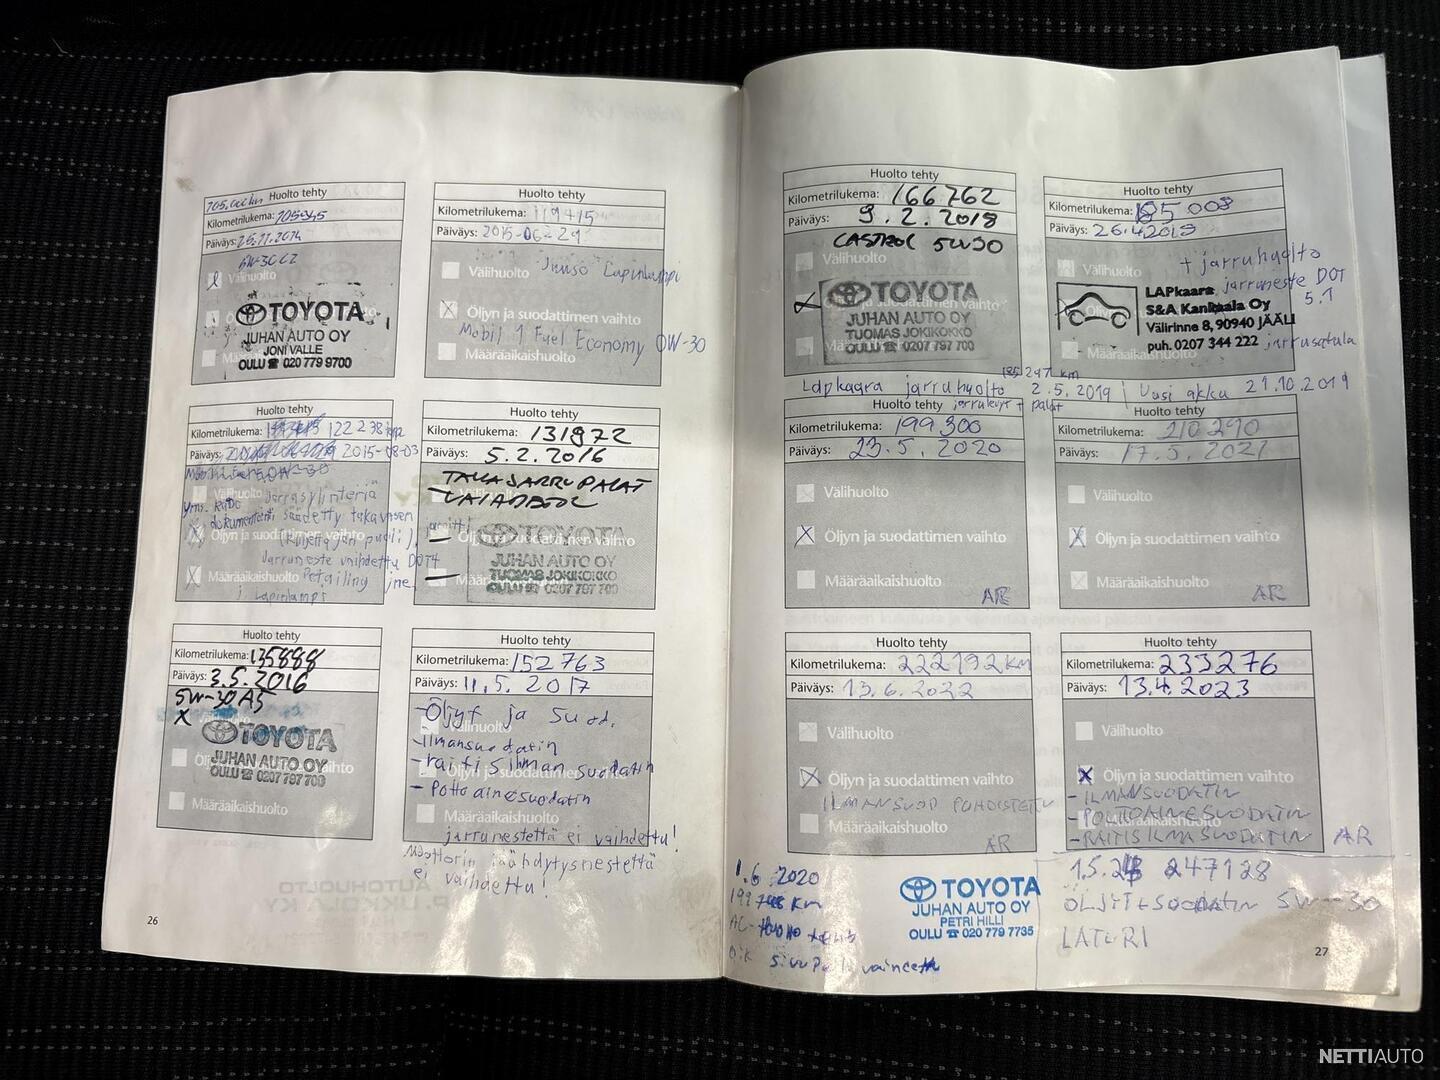 Huolto tehty
Kilometrilukema: 105945
Päiväys: 26.11.2014
Välihuolto
TOYOTA
JUHAN AUTO OY
JONI VALLE
OULU ☎ 020 779 9700
Huolto tehty
Kilometrilukema: 119415
Päiväys: 2015-06-29
Välihuolto
Juuso Lapinlampi
Öljyn ja suodattimen vaihto
Mobil 1 Fuel Economy 0W-30
Määräaikaishuolto
Huolto tehty
Kilometrilukema: 122 238
Päiväys: 2015-08-03
Jarrusylinteriä
säädetty
Öljyn ja suodattimen vaihto
(kuljettajan puoli),
Jarruneste vaihdettu DOT4
Määräaikaishuolto
J. Lapinlampi
Huolto tehty
Kilometrilukema: 131972
Päiväys: 5.2.2016
TAKAJARRUPALAT
TOYOTA
JUHAN AUTO OY
TUOMAS JOKIKOKKO
OULU ☎ 0207 797 700
Huolto tehty
Kilometrilukema: 135888
Päiväys: 3.5.2016
5W-30 A5
X
TOYOTA
JUHAN AUTO OY
OULU ☎ 0207 797 700
Määräaikaishuolto
Huolto tehty
Kilometrilukema: 152 763
Päiväys: 11.5.2017
- Öljyt ja suod.
- Ilmansuodatin
- raitisilman suodatin
- Polttoainesuodatin
Määräaikaishuolto
jarrunestettä ei vaihdettu!
Moottorin jäähdytysnestettä
ei vaihdettu!
26
Huolto tehty
Kilometrilukema: 166762
Päiväys: 9.2.2018
CASTROL 5W30
Välihuolto
TOYOTA
JUHAN AUTO OY
TUOMAS JOKIKOKKO
OULU ☎ 0207 797 700
Huolto tehty
Kilometrilukema: 185 008
Päiväys: 26.4.2019
Välihuolto
+ jarruhuolto
jarruneste DOT
5.1
LAPkaara
S&A Kanltaala Oy
Välirinne 8, 90940 JÄÄLI
puh. 0207 344 222
Määräaikaishuolto
185 247 km
Lapkaara jarruhuolto 2.5.2019 | Uusi akku 21.10.2019
jarrulevyt + palat
Huolto tehty
Kilometrilukema: 199 300
Päiväys: 23.5.2020
Välihuolto
Öljyn ja suodattimen vaihto
Määräaikaishuolto
AR
Huolto tehty
Kilometrilukema: 210290
Päiväys: 17.5.2021
Välihuolto
Öljyn ja suodattimen vaihto
Määräaikaishuolto
AR
Huolto tehty
Kilometrilukema: 222192 km
Päiväys: 13.6.2022
Välihuolto
Öljyn ja suodattimen vaihto
ILMANSUOD PUHDISTETTU
Määräaikaishuolto
AR
Huolto tehty
Kilometrilukema: 233276
Päiväys: 13.4.2023
Välihuolto
Öljyn ja suodattimen vaihto
- ILMANSUODATIN
- POLTTOAINESUODATIN
- RAITISILMASUODATIN AR
1.6 2020
TOYOTA
JUHAN AUTO OY
PETRI HILLI
OULU ☎ 020 779 7735
247128
ÖLJYT + SUODATIN 5W-30
LATURI
27
NETTIAUTO